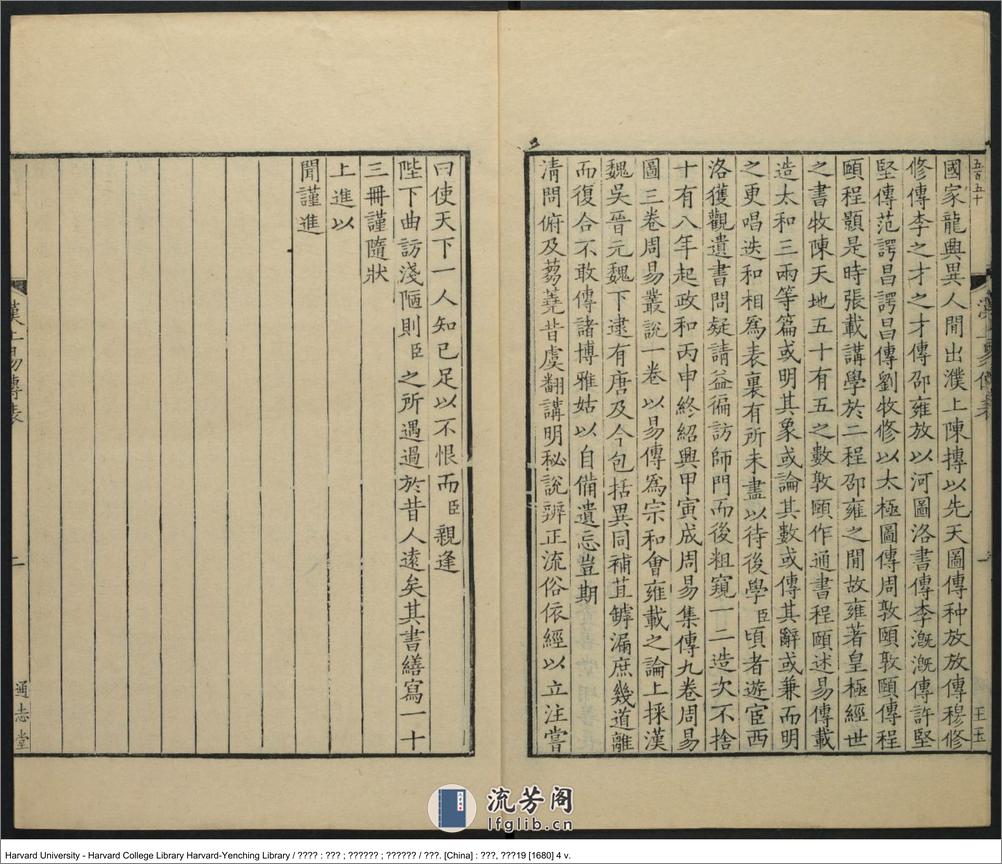 五百五十
國家龍興異人間出濮上陳摶以先天圖傳种放放傳穆修
修傳李之才之才傳邵雍放以河圖洛書傳李漑漑傳許堅
堅傳范諤昌諤昌傳劉牧修以太極圖傳周敦頤敦頤傳程
頤程顥是時張載講學於二程邵雍之閒故雍著皇極經世
之書牧陳天地五十有五之數敦頤作通書程頤述易傳載
造太和三兩等篇或明其象或論其數或傳其辭或兼而明
之更唱迭和相爲表裏有所未盡以待後學臣頃者遊宦西
洛獲觀遺書問疑請益徧訪師門而後粗窺一二造次不捨
十有八年起政和丙申終紹興甲寅成周易集傳九卷周易
圖三卷周易叢說一卷以易傳爲宗和會雍載之論上採漢
魏吳晉元魏下逮有唐及今包括異同補苴罅漏庶幾道離
而復合不敢傳諸博雅姑以自備遺忘豈期
清問俯及蒭蕘昔虞翻講明秘說辨正流俗依經以立注嘗
王玉
曰使天下一人知已足以不恨而臣親逢
陛下曲訪淺陋則臣之所遇過於昔人遠矣其書繕寫一十
三冊謹隨狀
上進以
聞謹進
漢上易傳表
二
通志堂
流芳阁
lfglib.cn
Harvard University - Harvard College Library Harvard-Yenching Library / ???? : ??? ; ?????? ; ?????? / ???. [China] : ???, ???19 [1680] 4 v.